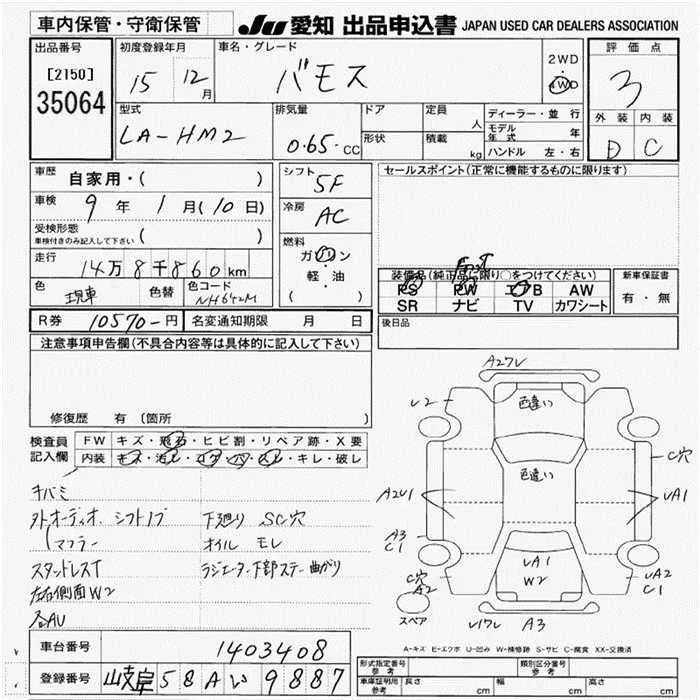 車内保管・守衛保管
JU 愛知 出品申込書 JAPAN USED CAR DEALERS ASSOCIATION
出品番号
[2150]
35064
初度登録年月
15 12月
車名・グレード
バモス
2WD
4WD
評価点
3
外装 内装
D C
型式
LA-HM2
排気量
0.65.CC
ドア
形状
定員
人
積載
kg
ディーラー・並行
モデル年式 年
ハンドル 左・右
車歴
自家用・( )
車検
9年 1月(10日)
受検形態
車検付きのみ記入して下さい ( )
走行
14万8千860km
色
現車
色替
色コード
NH642M
シフト
5F
冷房
AC
燃料
ガソリン
・
軽・油
( )
セールスポイント(正常に機能するものに限ります)
装備品(純正品に限り○をつけてください)
PS PW エアB AW
SR ナビ TV カワシート
新車保証書
有・無
R券 10570-円
名変通知期限 月 日
後日品
注意事項申告欄(不具合内容等は具体的に記入して下さい)
修復歴 有 (箇所
検査員
記入欄
FW キズ・飛石・ヒビ割・リペア跡・X要
内装 キズ・汚レ・コゲ・穴・スレ・キレ・破レ
キバミ
外オーディオ、シフトノブ
(マフラー
スタッドレスT
左右側面W2
各AU
下廻り SC穴
オイル モレ
ラジエータ下部ステー曲がり
A27V
U2
色違い
C穴
色違い
A2U1
UA1
A3
C1
UA1
W2
C穴
A2
UA2
C1
スペア
U17V A3
A-キズ E-エクボ U-凹み W-補修跡 S-サビ C-腐食 XX-交換済
車台番号
1403408
登録番号
岐阜 58 A い 9887
形式指定番号
参考
類別区分番号
参考
車庫証明用
参考
長さ cm 幅 cm 高さ cm